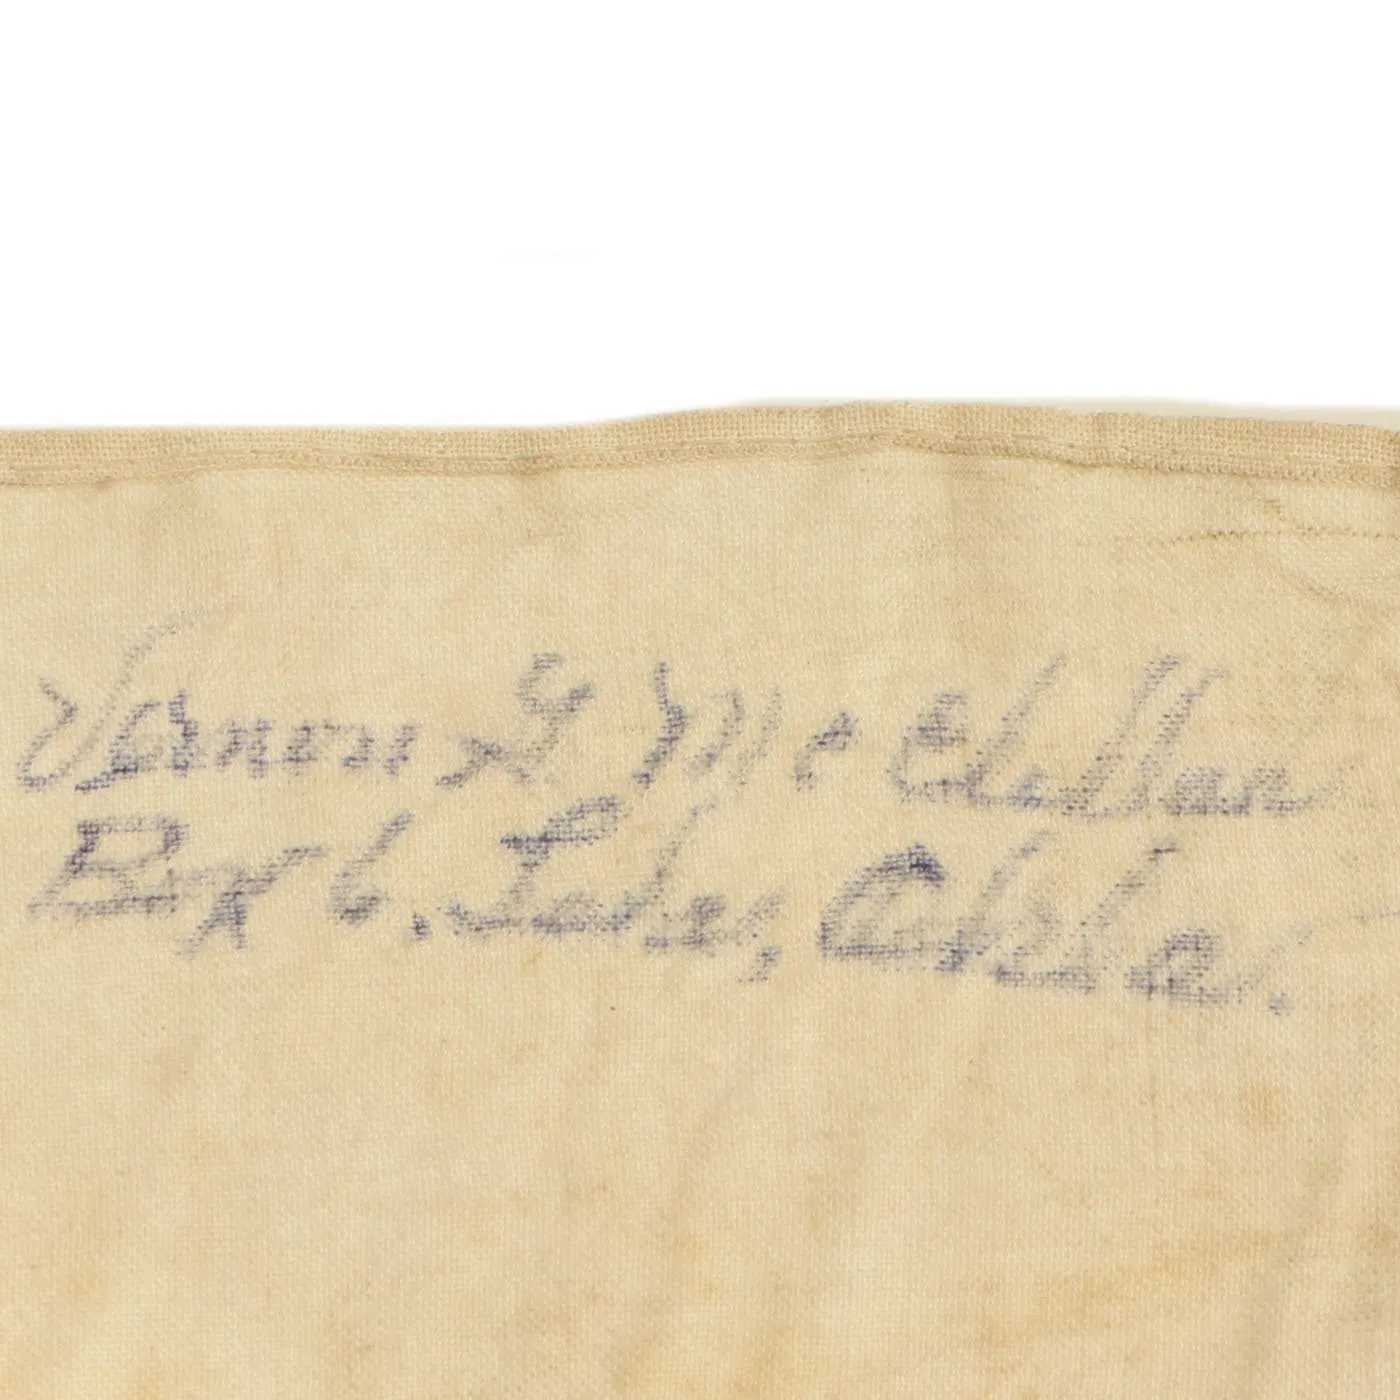 Vernon G. McClellan
Box 6, Felt, Okla.